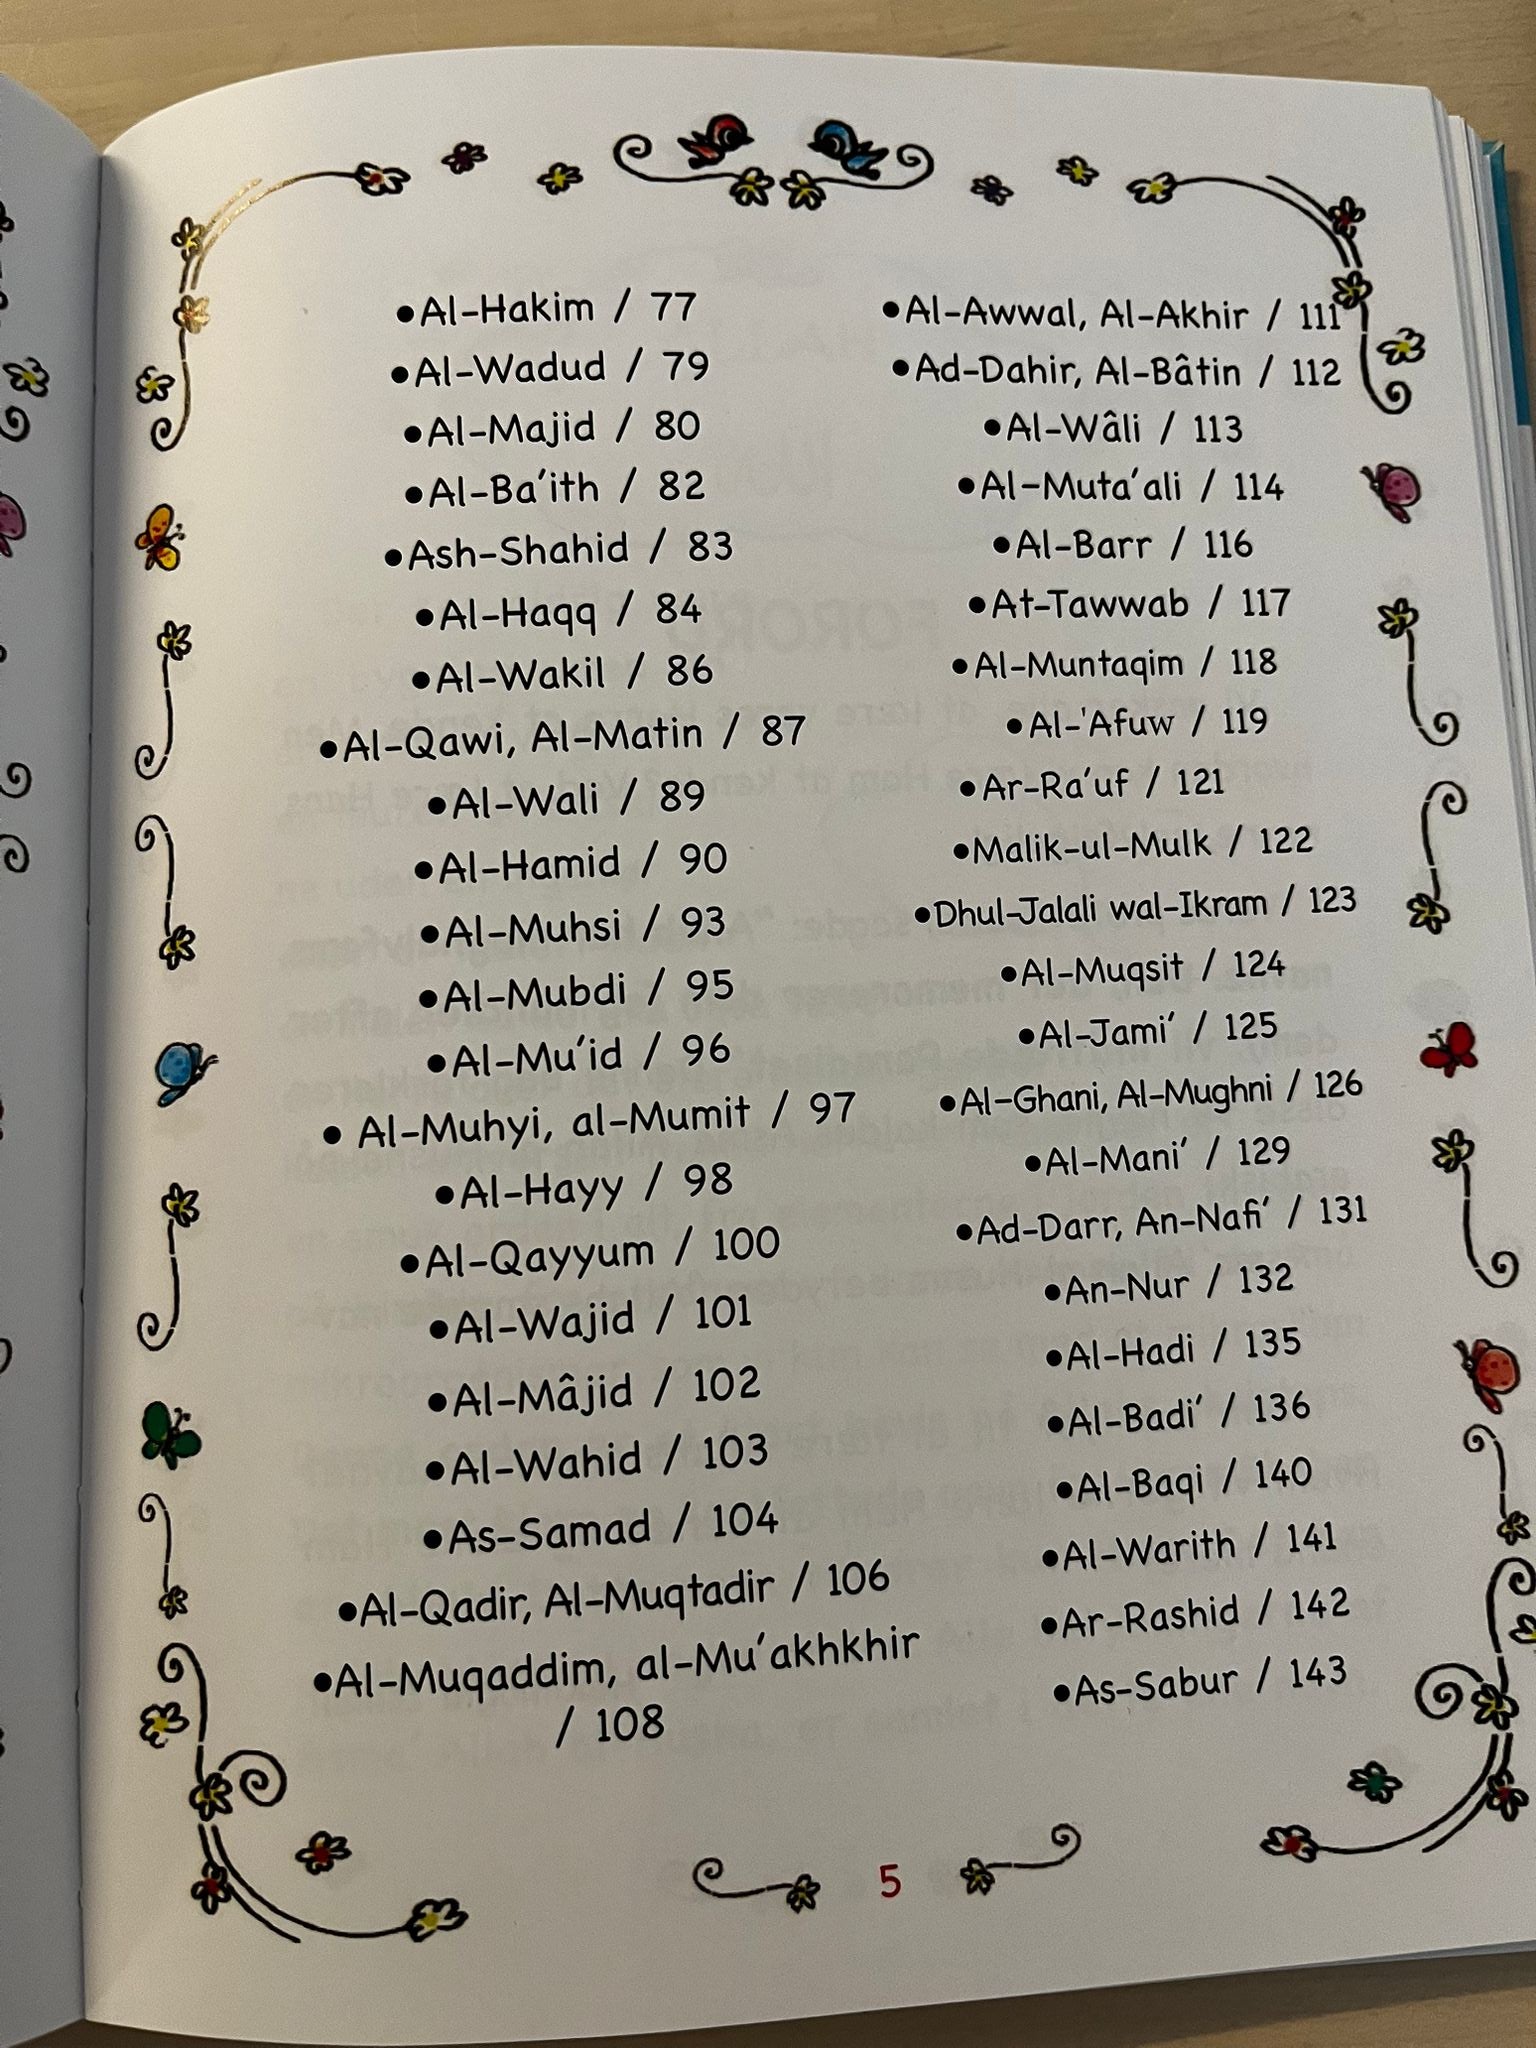 •Al-Hakim / 77
•Al-Wadud / 79
•Al-Majid / 80
•Al-Ba’ith / 82
•Ash-Shahid / 83
•Al-Haqq / 84
•Al-Wakil / 86
•Al-Qawi, Al-Matin / 87
•Al-Wali / 89
•Al-Hamid / 90
•Al-Muhsi / 93
•Al-Mubdi / 95
•Al-Mu’id / 96
• Al-Muhyi, al-Mumit / 97
•Al-Hayy / 98
•Al-Qayyum / 100
•Al-Wajid / 101
•Al-Mâjid / 102
•Al-Wahid / 103
•As-Samad / 104
•Al-Qadir, Al-Muqtadir / 106
•Al-Muqaddim, al-Mu’akhkhir
/ 108
•Al-Awwal, Al-Akhir / 111
•Ad-Dahir, Al-Bâtin / 112
•Al-Wâli / 113
•Al-Muta’ali / 114
•Al-Barr / 116
•At-Tawwab / 117
•Al-Muntaqim / 118
•Al-'Afuw / 119
•Ar-Ra’uf / 121
•Malik-ul-Mulk / 122
•Dhul-Jalali wal-Ikram / 123
•Al-Muqsit / 124
•Al-Jami’ / 125
•Al-Ghani, Al-Mughni / 126
•Al-Mani’ / 129
•Ad-Darr, An-Nafi’ / 131
•An-Nur / 132
•Al-Hadi / 135
•Al-Badi’ / 136
•Al-Baqi / 140
•Al-Warith / 141
•Ar-Rashid / 142
•As-Sabur / 143
5